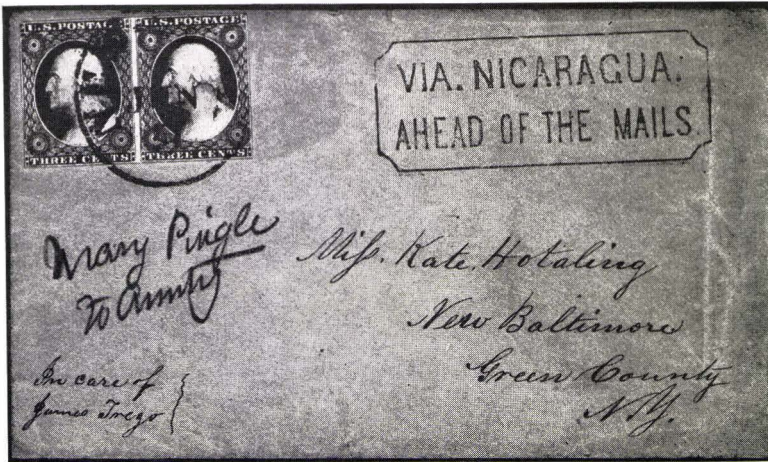 U.S. POSTAGE U.S. POSTAGE
THREE CENTS THREE CENTS
VIA. NICARAGUA.
AHEAD OF THE MAILS
Mary Pingle
To Aunty
Miss. Kate. Hotaling
New Baltimore
Green County
N.Y.
In care of
James Trego